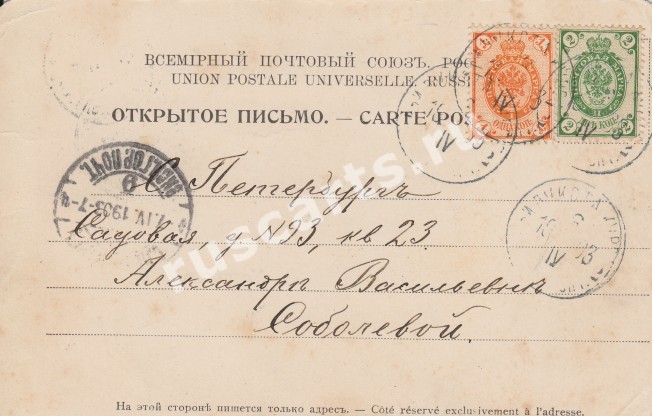 ВСЕМІРНЫЙ ПОЧТОВЫЙ СОЮЗЪ. РОС
UNION POSTALE UNIVERSELLE. RUSS
ОТКРЫТОЕ ПИСЬМО. — CARTE POS
С Петербургъ
Садовая, д №93, кв 23.
Александрѣ Васильевнѣ
Соболевой.
На этой сторонѣ пишется только адресъ. — Côté réservé exclusivement à l'adresse.
ruscarts.ru